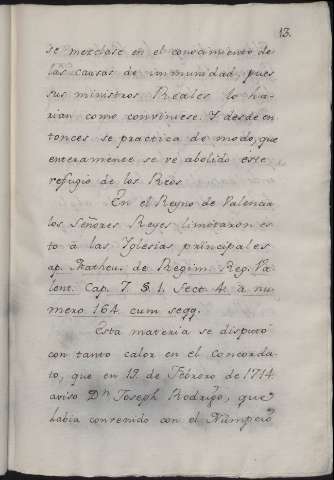 13.
se mezclase en el conocimiento de
las causas de immunidad, pues
sus ministros Reales lo ha-
rian como conviniese. Y desde en-
tonces se practica de modo, que
enteramente se ve abolido este
refugio de los Reos.
En el Reyno de Valencia
los Señores Reyes limitaron es-
to à las Iglesias principales
ap. Matheu. de Regim. Reg. Va-
lent. Cap. 7. §. 1. Sect. 4. à nu-
mero 164. cum segg.
Esta materia se disputó
con tanto calor en el Concorda-
to, que en 19. de Febrero de 1714.
aviso Dn Joseph Rodrigo, que
habia convenido con el Numpcio